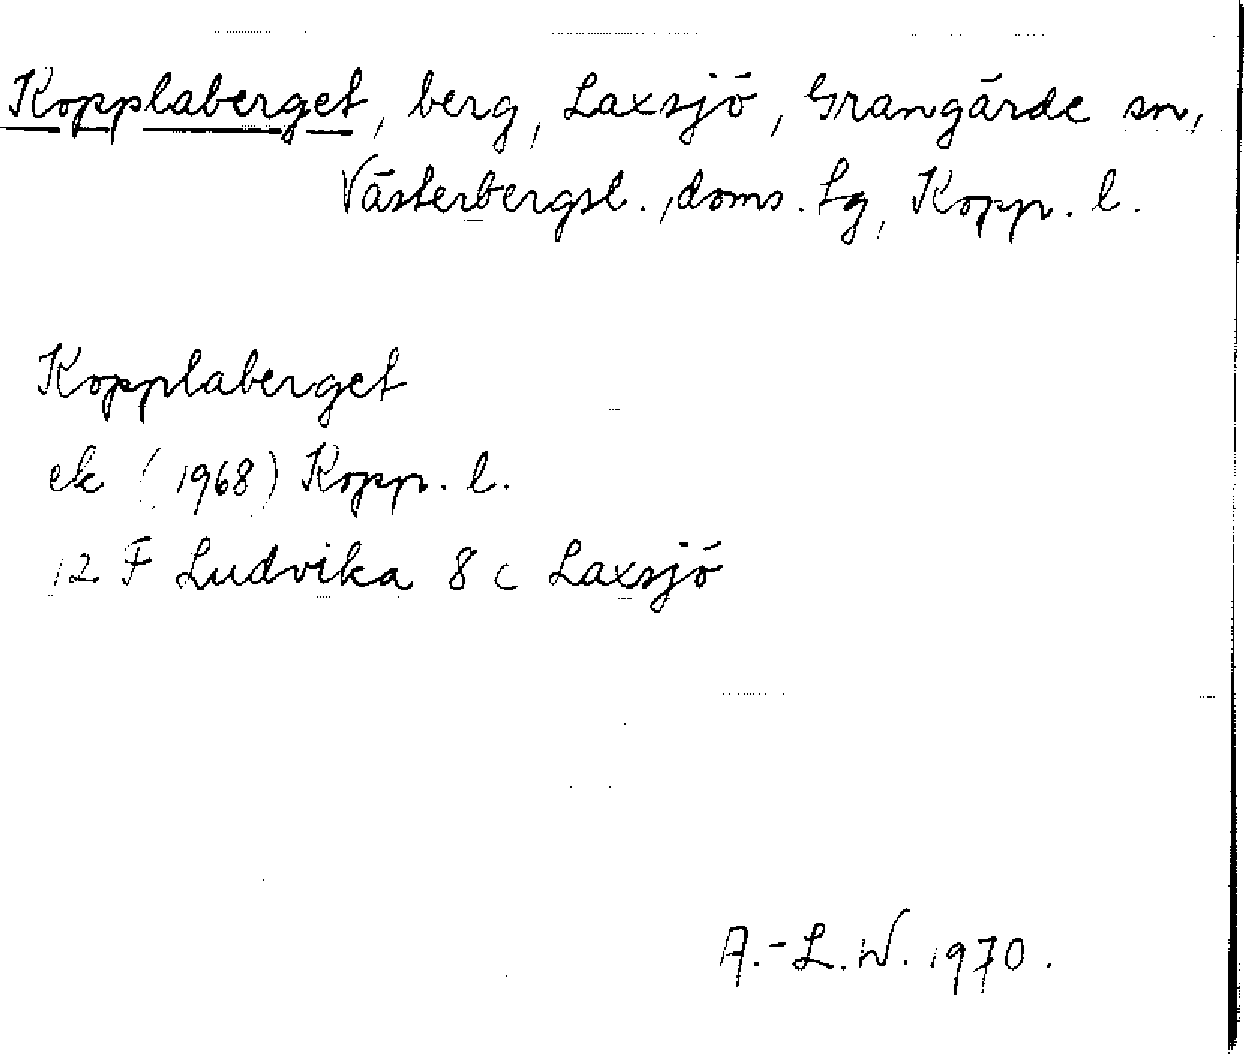 Kopplaberget, berg, Laxsjö, Grangärde sn,
Västerbergsl., doms. tg, Kopp. l.
Kopplaberget
ek (1968) Kopp. l.
12 F Ludvika 8 c Laxsjö
A.-L.W. 1970.